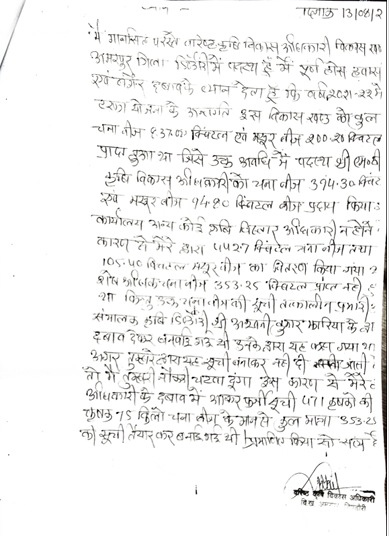 दिनांक 13/08/2
मैं मानसिंह परस्ते वरिष्ठ कृषि विकास अधिकारी विकास खण्ड
अमरपुर जिला डिंडौरी में पदस्थ हूँ मैं पूर्ण होश हवास
एवं बगैर दबाव के ब्यान देता हूँ कि वर्ष 2021-22 में
योजना के अन्तर्गत इस विकास खण्ड को कुल
चना बीज क्विंटल एवं मसूर बीज 200.20 क्विंटल
प्राप्त हुआ था जिसे उक्त अवधि में पदस्थ श्री
कृषि विकास अधिकारी को चना बीज 394.30 क्विंटल
एवं मसूर बीज 94.80 क्विंटल बीज प्रदाय किया
कार्यालय अन्य कोई कृषि विस्तार अधिकारी न होने
कारण से मेरे द्वारा क्विंटल चना बीज तथा
105.40 क्विंटल मसूर बीज का वितरण किया गया
शेष चना बीज 353.25 क्विंटल प्राप्त नहीं
था किन्तु उक्त चना बीज की सूची तत्कालीन प्रभारी
संचालक कृषि डिंडौरी श्री अश्वनी कुमार झारिया के द्वा
दबाव देकर बनवाई गई थी उनके द्वारा यह कहा गया था
अगर तुम्हारे द्वारा यह सूची बनाकर नहीं दी जाती
तो मैं तुम्हारी नौकरी दूंगा उस कारण से मेरे
अधिकारी के दबाव में आकर फर्जी सूची 471 कृषकों की
कृषक 75 किलो चना बीज के मान से कुल मात्रा 353.25
की सूची तैयार कर बनाई गई थी प्रमाणित किया जो सत्य है
वरिष्ठ कृषि विकास अधिकारी